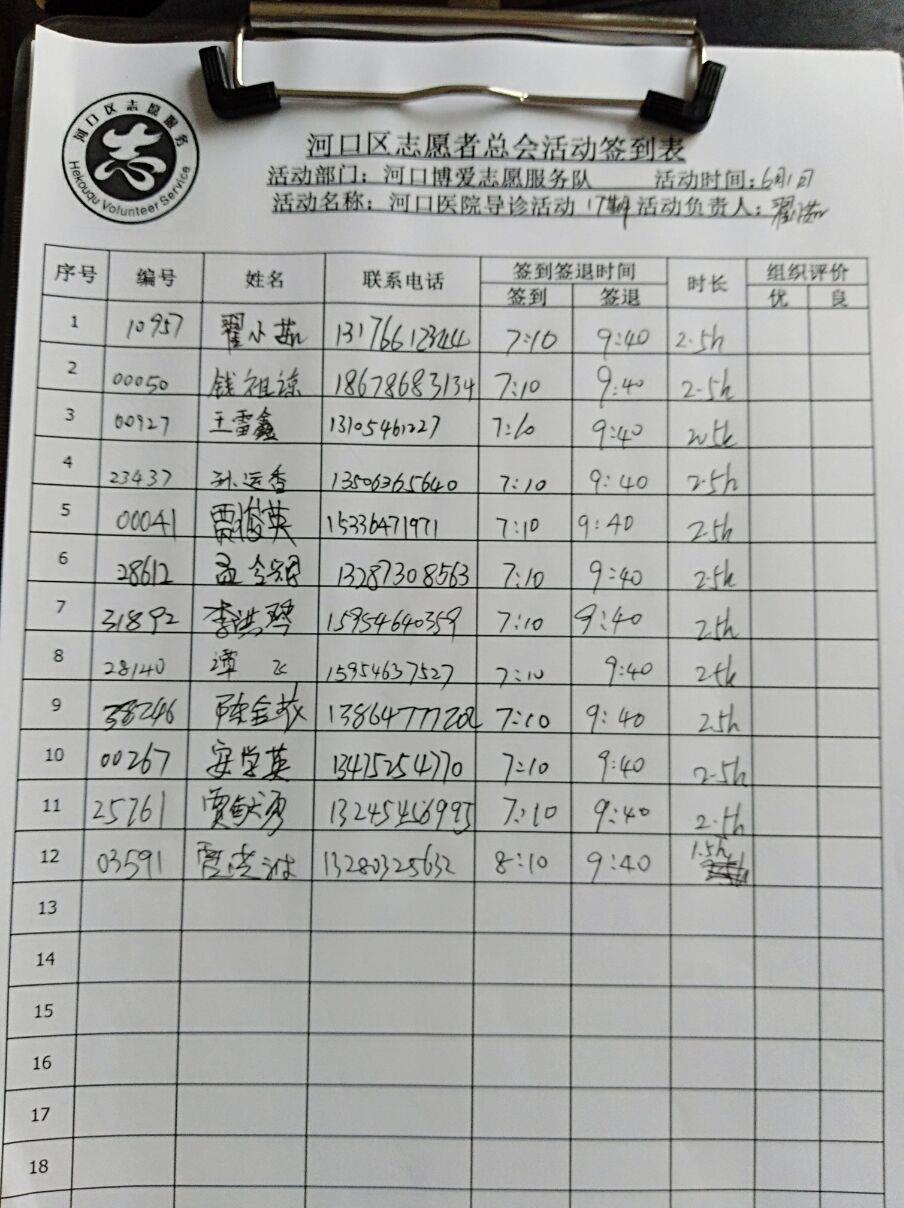 河口区志愿服务
志
Hekouqu Volunteer Service
河口区志愿者总会活动签到表
活动部门：河口博爱志愿服务队 活动时间：6月1日
活动名称：河口医院导诊活动 17期 活动负责人：
序号 编号 姓名 联系电话 签到签退时间 时长 组织评价
签到 签退 优 良
1 10957 翟小茹 13176612344 7:10 9:40 2.5h
2 00050 钱祖谅 18678683134 7:10 9:40 2.5h
3 00927 王雷鑫 13105461227 7:10 9:40 2.5h
4 23437 孙运香 13506365640 7:10 9:40 2.5h
5 00041 贾俊英 15336471971 7:10 9:40 2.5h
6 28612 孟令娟 13287308563 7:10 9:40 2.5h
7 31892 李洪琴 15954640359 7:10 9:40 2.5h
8 28140 谭飞 15954637527 7:10 9:40 2.5h
9 38246 陈金 7:10 9:40 2.5h
10 00267 安学英 13475254770 7:10 9:40 2.5h
11 25761 贾献勇 13245466995 7:10 9:40 2.5h
12 03591 贾 13280325632 8:10 9:40 1.5h
13
14
15
16
17
18